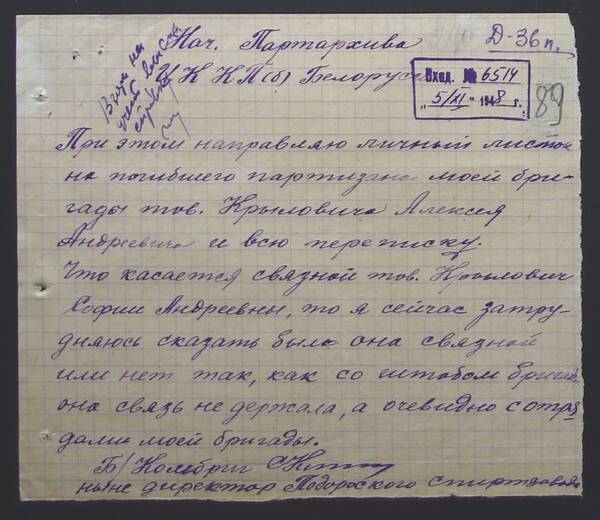 Нач. Партархива
Д-36п.
ЦК КП(б) Белорус
Взять на
учет
Вход. № 6514
"5/XI" 1948 г.
89
При этом направляю личный листок
на погибшего партизана моей бри-
гады тов. Крыловича Алексея
Андреевича и всю переписку.
Что касается связной тов. Крылович
Софии Андреевны, то я сейчас затру-
дняюсь сказать была она связной
или нет так, как со штабом бригады
она связь не держала, а очевидно с отря-
дами моей бригады.
Б/Комбриг
ныне директор Подоросского спиртзавода